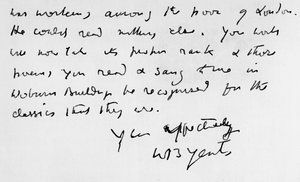 was working among the poor of London.
He could read nothing else. Your work
will now take its proper rank & those
poems you read & sang to me in
Woburn Buildings be recognised for the
classics that they are.
Yrs affectionately
WB Yeats